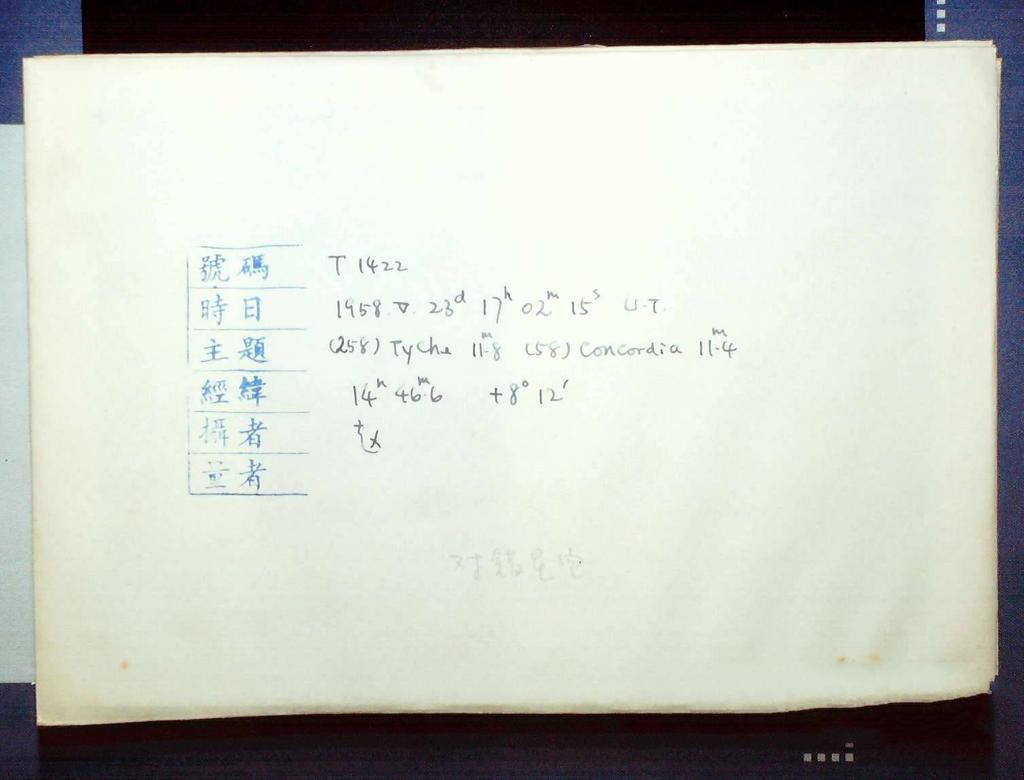 號碼 T 1422
時日 1958. V. 23d 17h 02m 15s U.T.
主題 (258) Tyche 11m.8 (58) Concordia 11m.4
經緯 14h 46m.6 +8° 12′
攝者 赵
量者
对錯星空